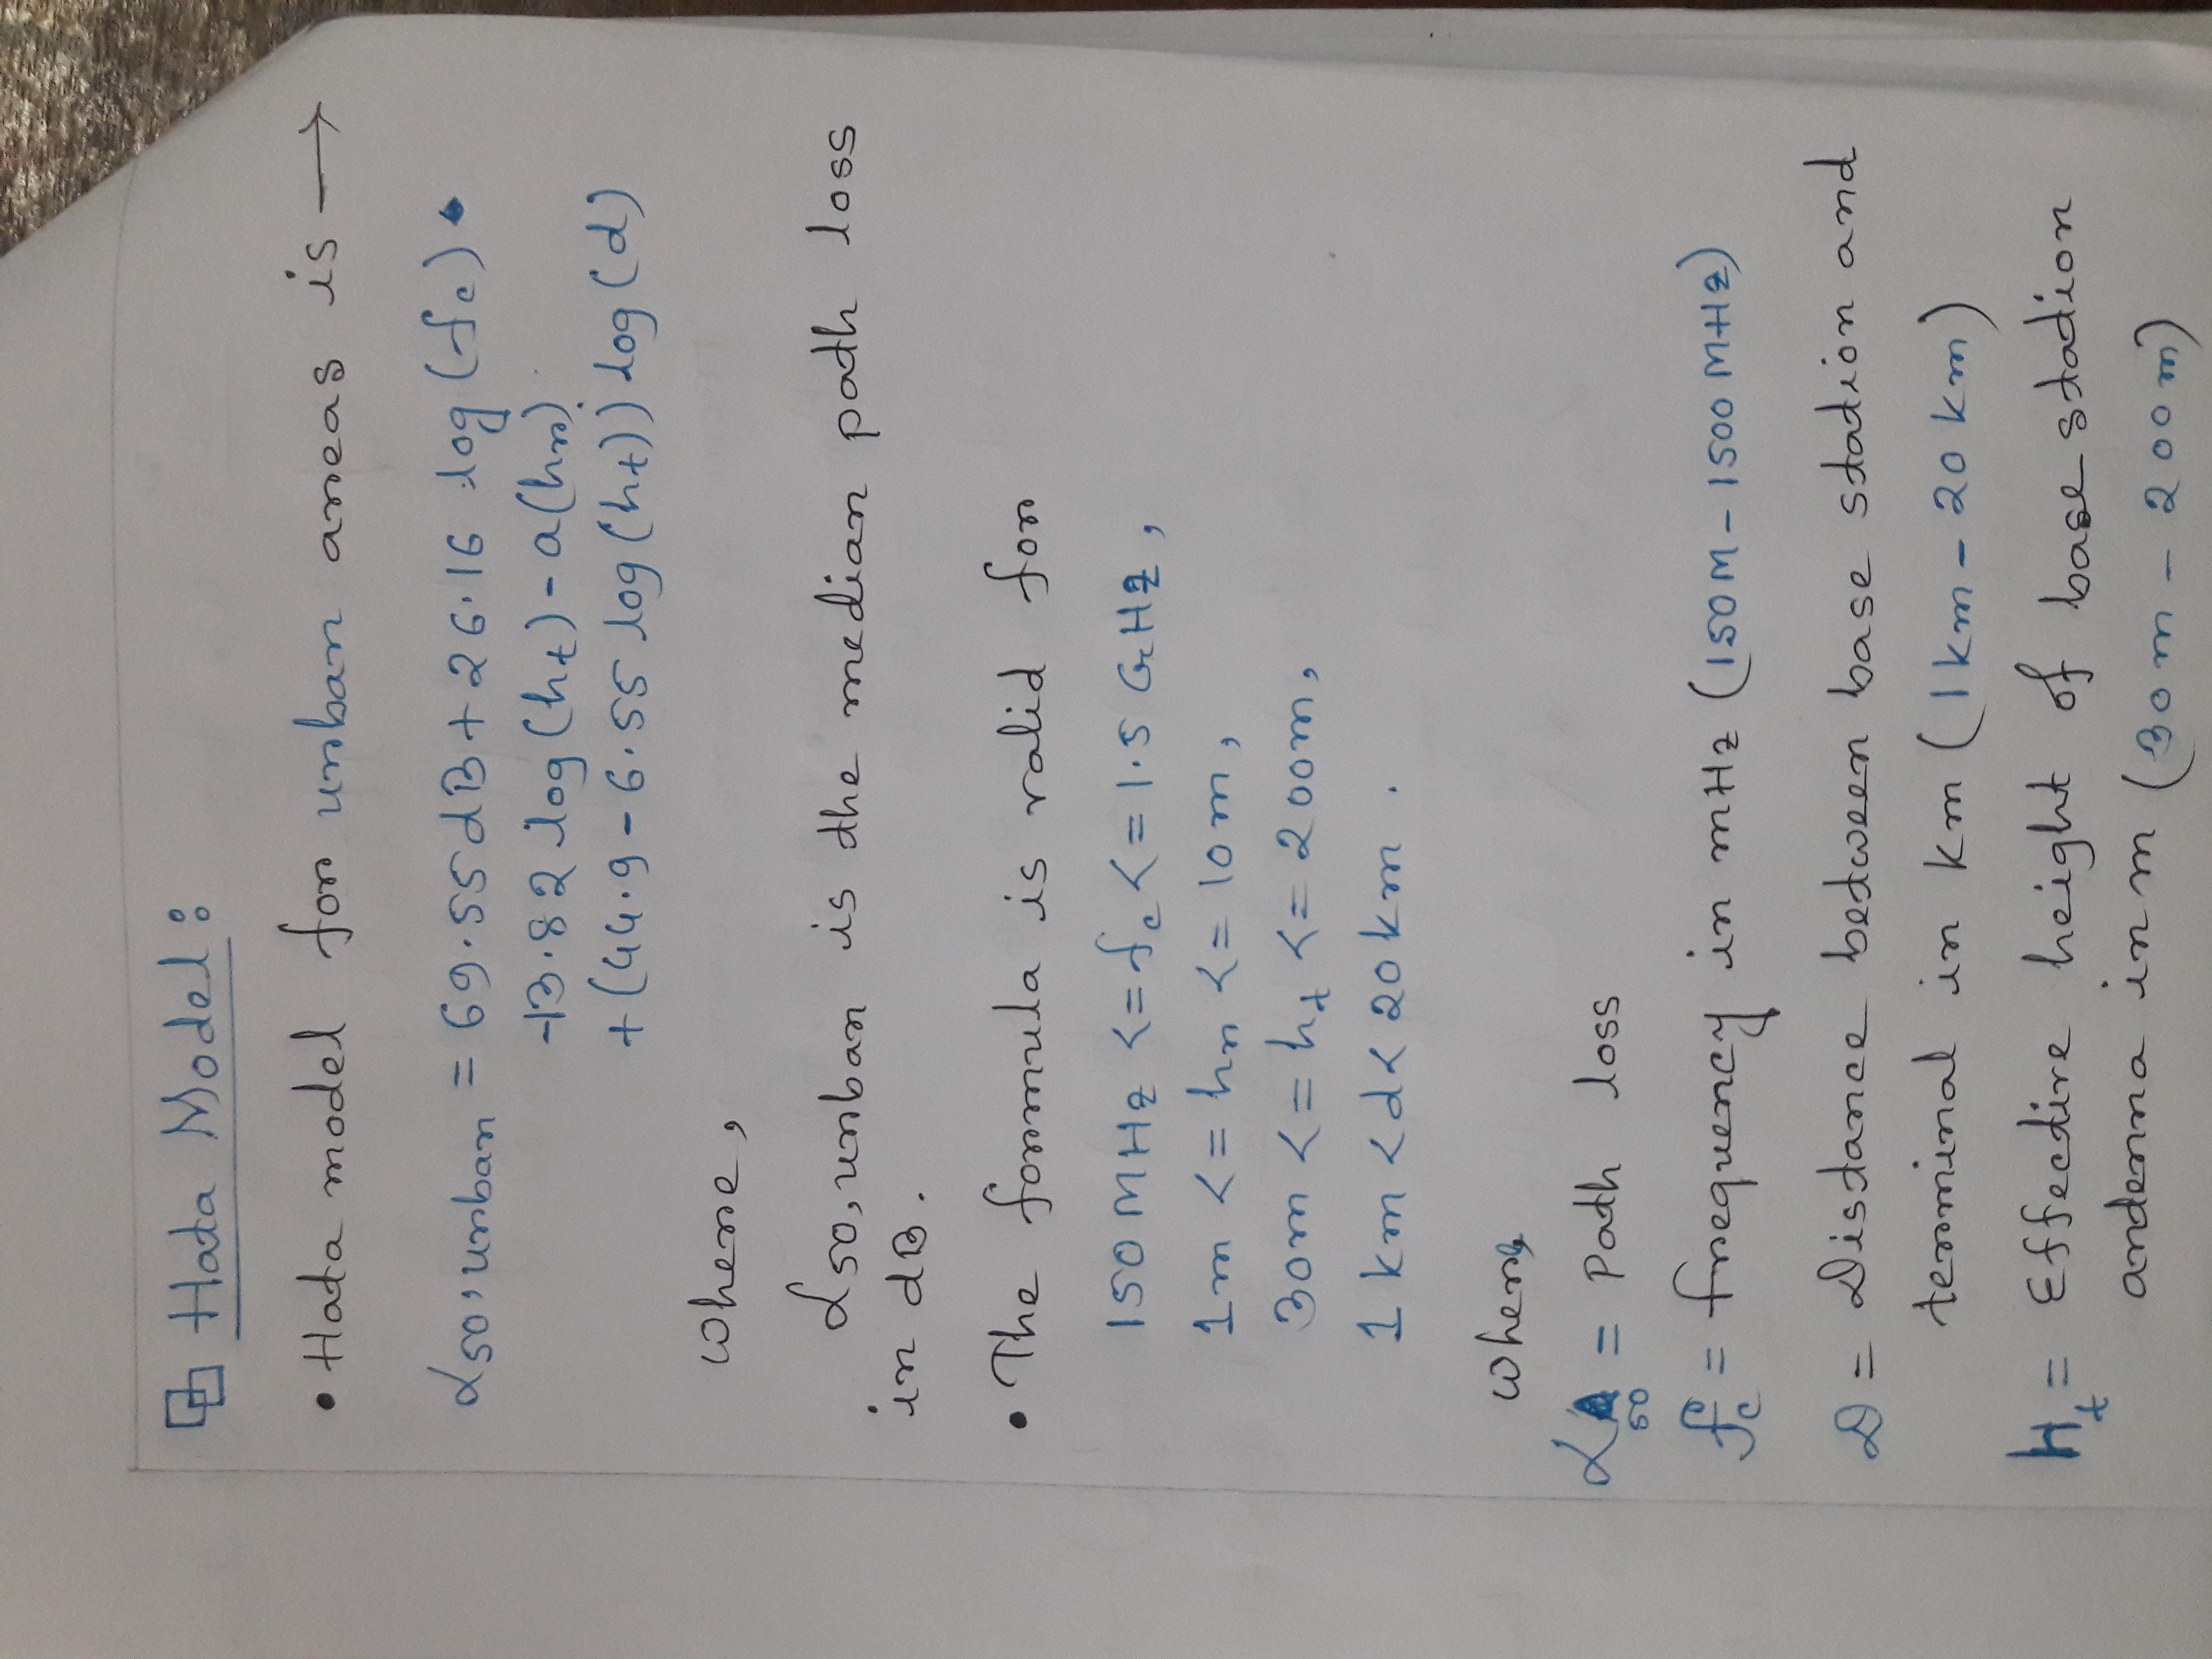 Hata Model:
• Hata model for urban areas is →
L50, urban = 69.55 dB + 26.16 log (fc)
-13.82 log (ht) - a(hr)
+ (44.9 - 6.55 log (ht)) log (d)
where,
L50, urban is the median path loss
in dB.
• The formula is valid for
150 MHz <= fc <= 1.5 GHz,
1m <= hr <= 10m,
30m <= ht <= 200m,
1 km < d < 20 km.
where,
L50 = Path loss
fc = frequency in mHz (150M - 1500 MHz)
D = Distance between base station and
terminal in km (1 km - 20 km)
Ht = Effective height of base station
antenna in m (30m - 200m)